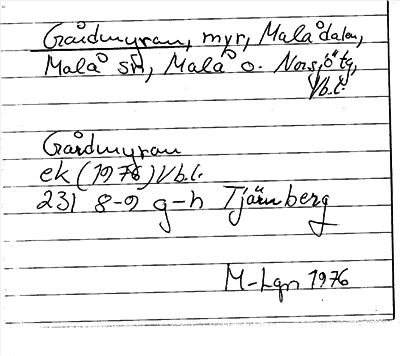 Gårdmyran, myr, Malådalen,
Malå sn, Malå o. Norsjö tg,
Vb.l.
Gårdmyran
ek (1976) Vb.l.
231 8-9 g-h Tjärnberg
M-Lgn 1976